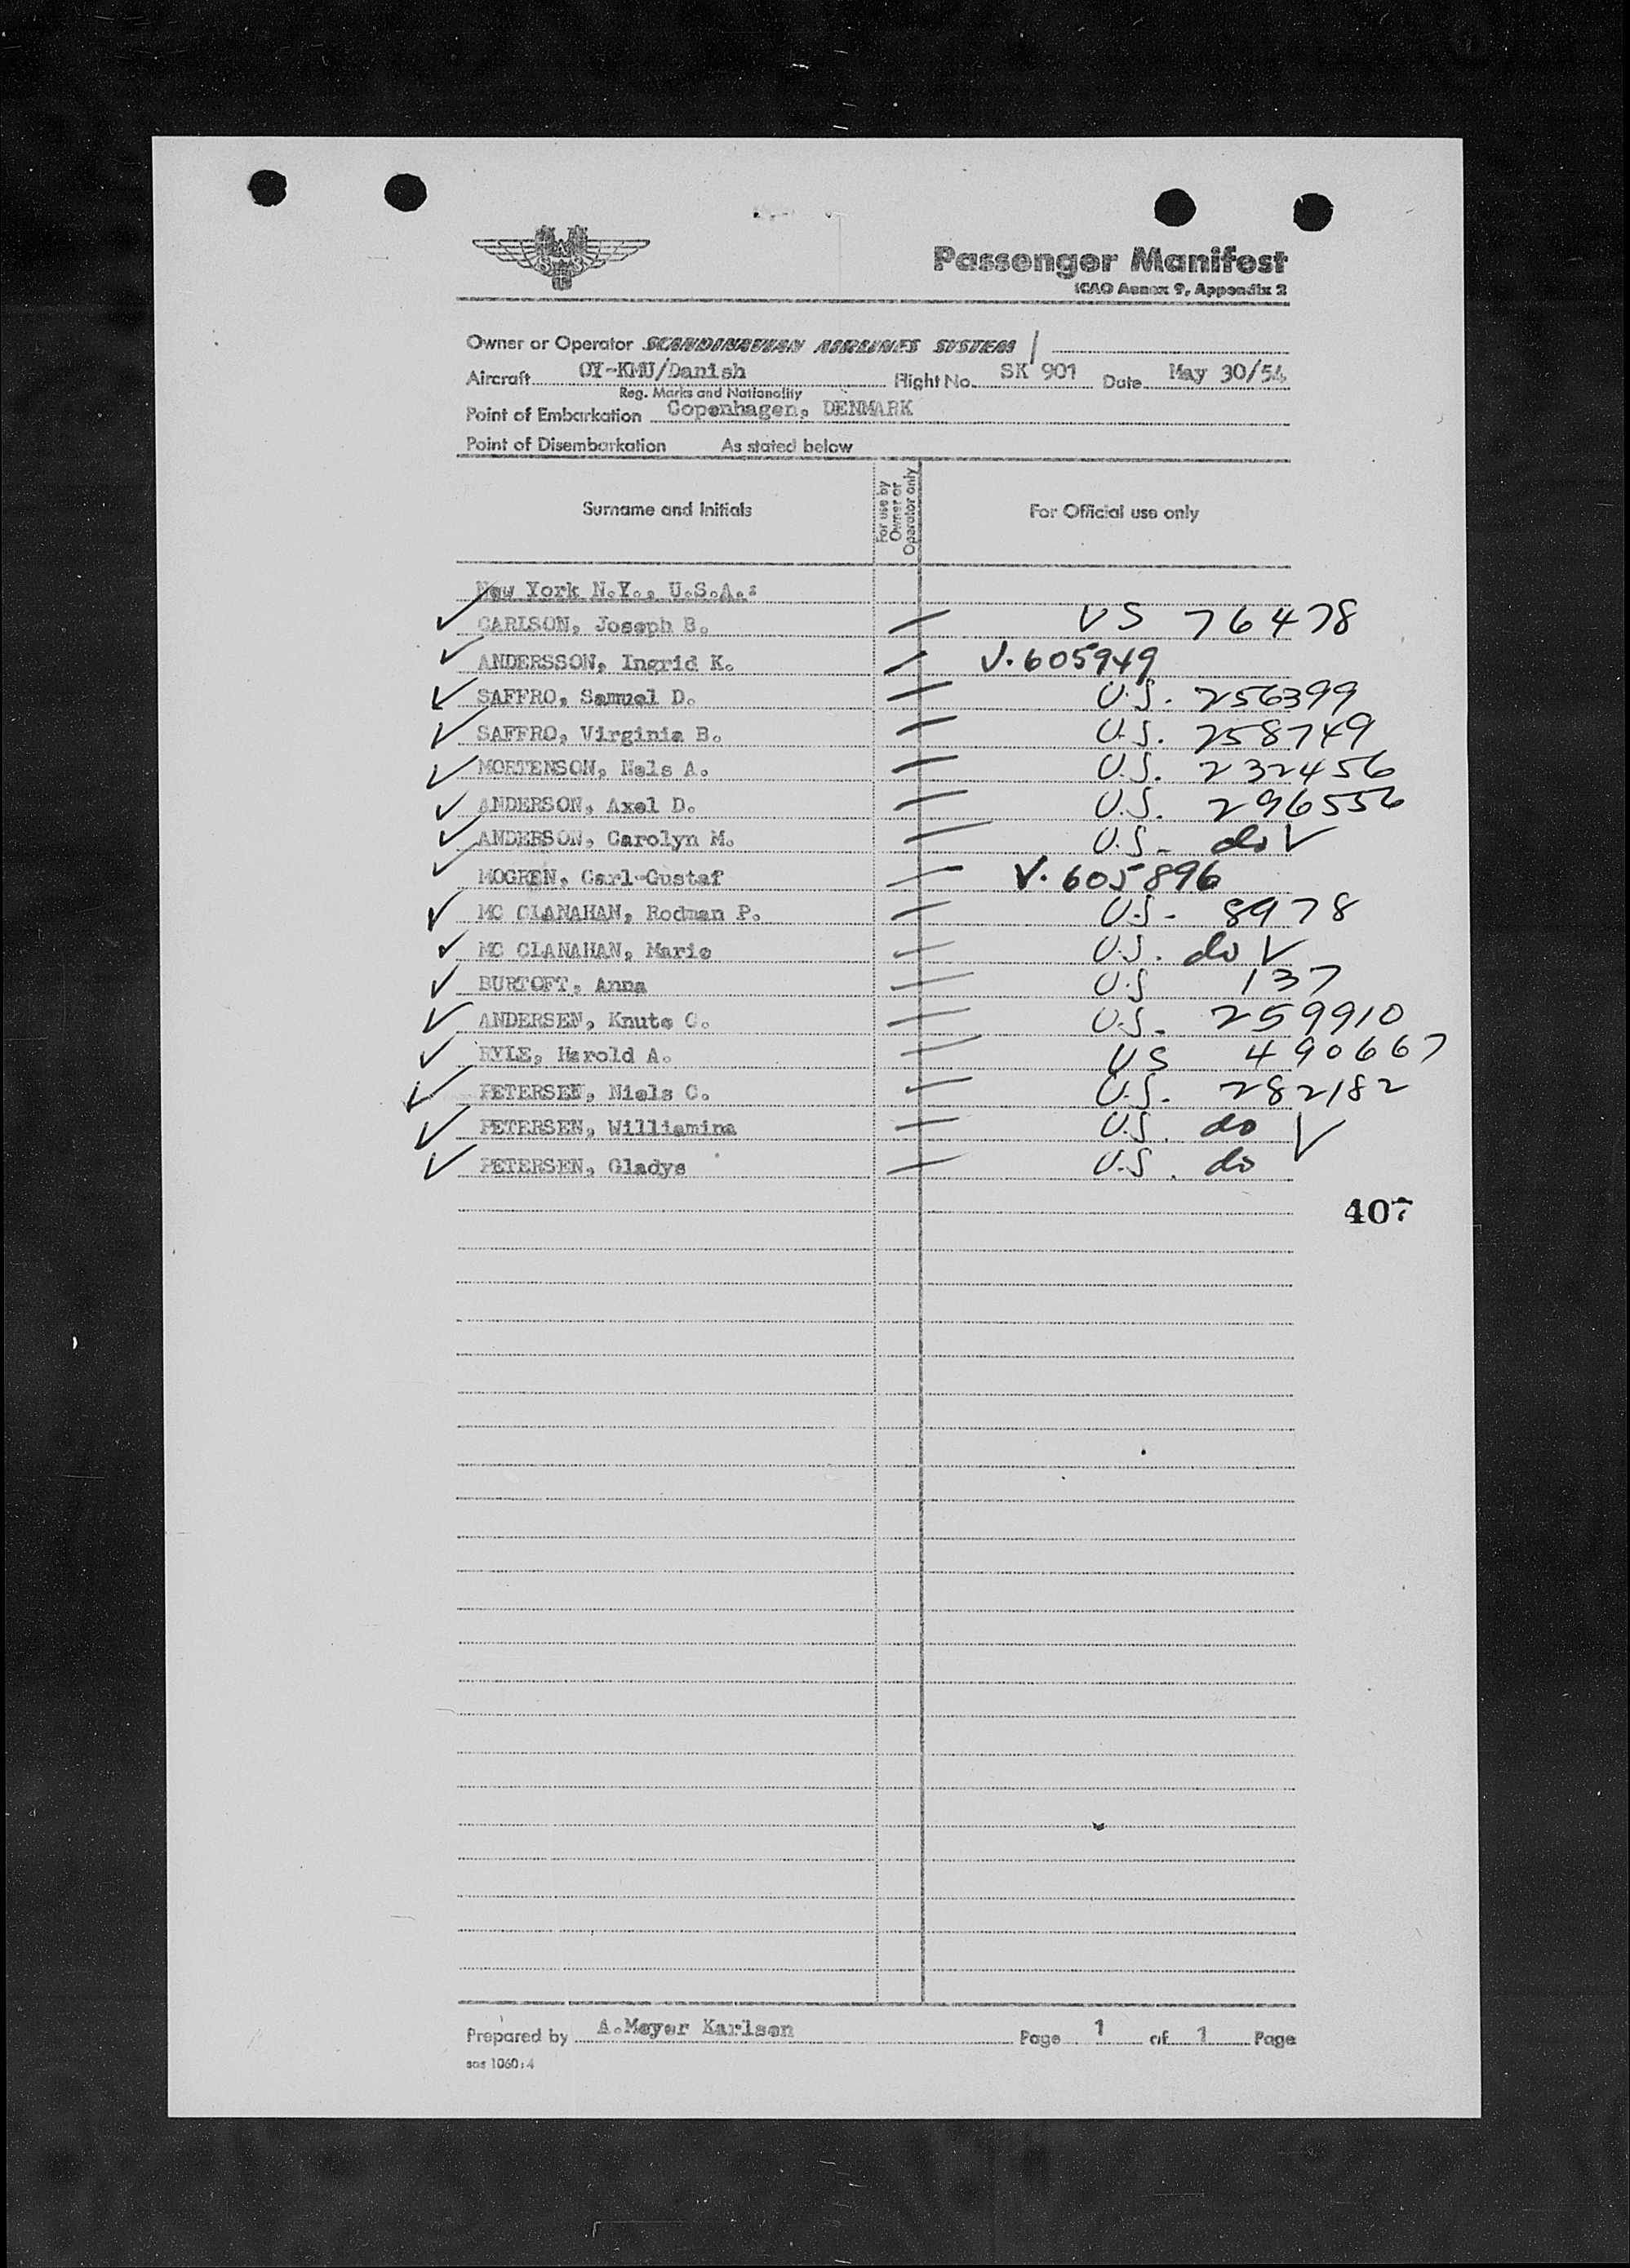 SAS
Passenger Manifest
ICAO Annex 9, Appendix 2
Owner or Operator SCANDINAVIAN AIRLINES SYSTEM /
Aircraft OY-KMU/Danish Flight No. SK 901 Date May 30/54
Reg. Marks and Nationality
Point of Embarkation Copenhagen, DENMARK
Point of Disembarkation As stated below
Surname and Initials For use by Owner or Operator only For Official use only
New York N.Y., U.S.A.:
CARLSON, Joseph B. US 76478
ANDERSSON, Ingrid K. V. 605949
SAFFRO, Samuel D. U.S. 256399
SAFFRO, Virginia B. U.S. 258749
MORTENSON, Nels A. U.S. 232456
ANDERSON, Axel D. U.S. 296556
ANDERSON, Carolyn M. U.S. do ✓
MOGREN, Carl-Gustaf V. 605896
MC CLANAHAN, Rodman P. U.S. 8978
MC CLANAHAN, Marie U.S. do ✓
BURTOFT, Anna U.S 137
ANDERSEN, Knute C. U.S. 259910
RYLE, Harold A. US 490667
PETERSEN, Niels C. U.S. 282182
PETERSEN, Williamina U.S. do ✓
PETERSEN, Gladys U.S. do
407
Prepared by A.Meyer Karlsen Page 1 of 1 Page
sas 1060:4